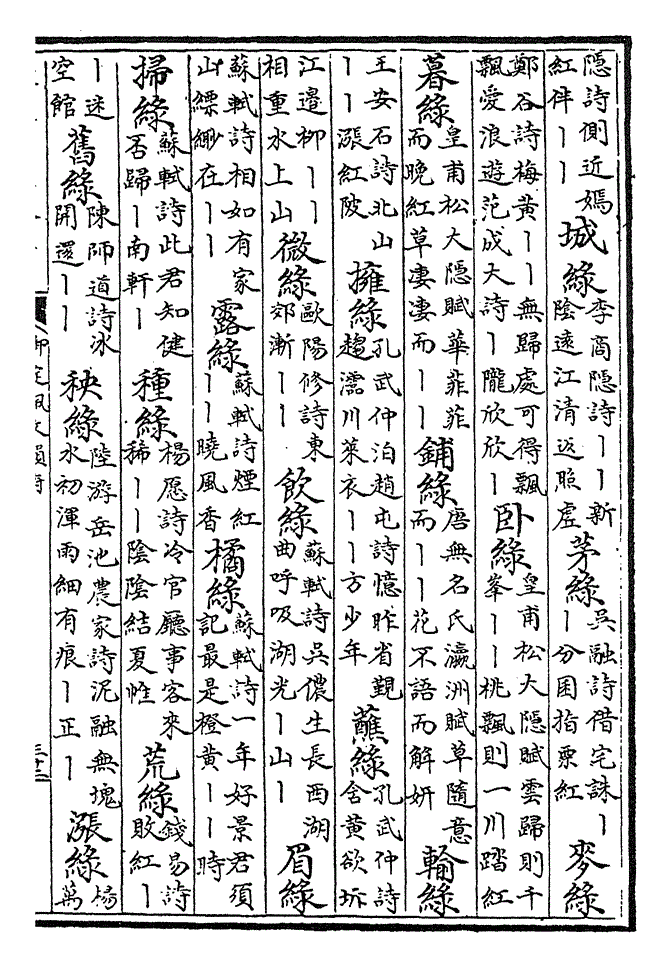 隠詩側近嫣紅伴丨丨 城綠 李商隱詩丨丨新陰遠江清返照虛 茅綠 吳融詩借宅誅丨丨分囷指粟紅 麥綠
鄭谷詩梅黃丨丨無歸處可得飄飄愛浪遊范成大詩丨隴欣欣丨 卧綠 皇甫松大隱賦雲歸則千峯丨丨桃飄則一川踏紅
暮綠 皇甫松大隱賦華菲菲而晚紅草凄凄而丨丨 鋪綠 唐無名氏瀛洲賦草隨意而丨丨花不語而解妍 輸綠
王安石詩北山丨丨漲紅陂 擁綠 孔武仲泊趙屯詩憶昨省覲趨濡川萊衣丨丨方少年 蘸綠 孔武仲詩含黃欲坼
江邉柳丨丨相重水上山 微綠 歐陽修詩東郊漸丨丨 飲綠 蘇軾詩吳儂生長西湖曲呼吸湖光丨山丨 眉綠
蘇軾詩相如有家山縹緲在丨丨 露綠 蘇軾詩煙紅丨丨曉風香 橘綠 蘇軾詩一年好景君須記最是橙黃丨丨時
掃綠 蘇軾詩此君知健否歸丨南軒丨 種綠 楊愿詩冷官廳事客來稀丨丨陰陰結夏帷 荒綠 錢易詩敗紅丨
丨迷空館 舊綠 陳師道詩冰開還丨丨 秧綠 陸游岳池農家詩泥融無塊水初渾雨細有痕丨正丨 漲綠 楊萬